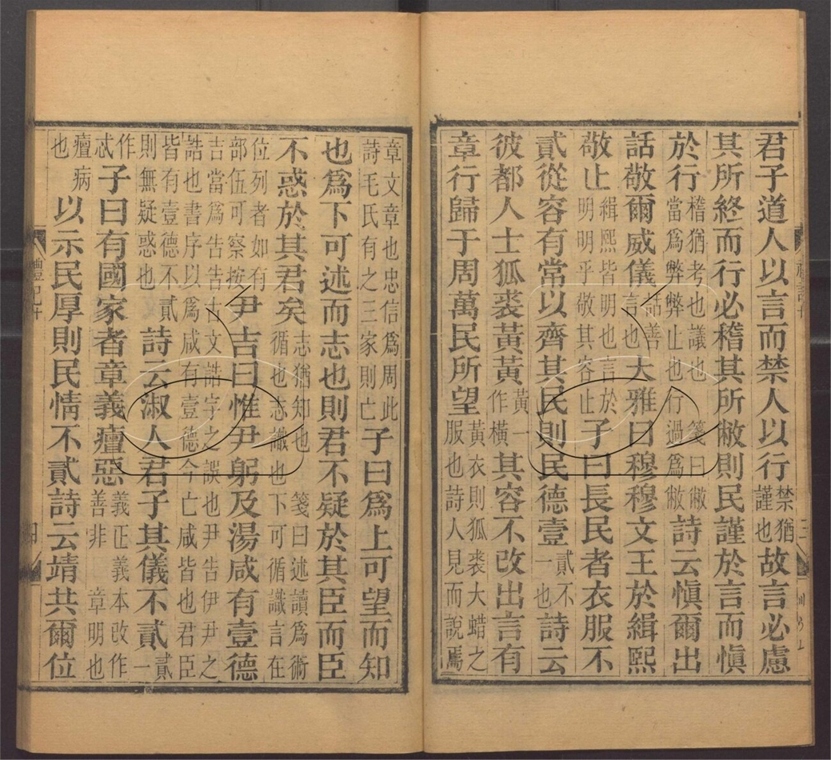 君子道人以言而禁人以行禁猶謹也故言必慮
其所終而行必稽其所敝則民謹於言而愼
於行稽猶考也議也 箋曰敝當爲弊弊止也行過爲敝詩云愼爾出
話敬爾威儀話善言也大雅曰穆穆文王於緝熙
敬止緝熙皆明也言於明明乎敬其容止子曰長民者衣服不
貳從容有常以齊其民則民德壹貳不一也詩云
彼都人士狐裘黃黃黃一作橫其容不改出言有
章行歸于周萬民所望黃衣則狐裘大蜡之服也詩人見而說焉
章文章也忠信爲周此詩毛氏有之三家則亡子曰爲上可望而知
也爲下可述而志也則君不疑於其臣而臣
不惑於其君矣志猶知也 箋曰述讀爲術循也志識也下可循識言在
位列者如有部伍可察按尹吉曰惟尹躬及湯咸有壹德
吉當爲告告古文誥字之誤也尹告伊尹之誥也書序以爲咸有壹德今亡咸皆也君臣
皆有壹德不貳則無疑惑也詩云淑人君子其儀不貳貳一
作忒子曰有國家者章義癉惡義正義本改作善非 章明也
癉病也以示民厚則民情不貳詩云靖共爾位
禮記十
四